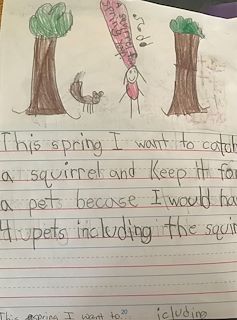 This spring I want to catch
a squirrel and Keep it for
a pets becuse I would ha
4 pets including the squir
This spring I want to 20 icluding